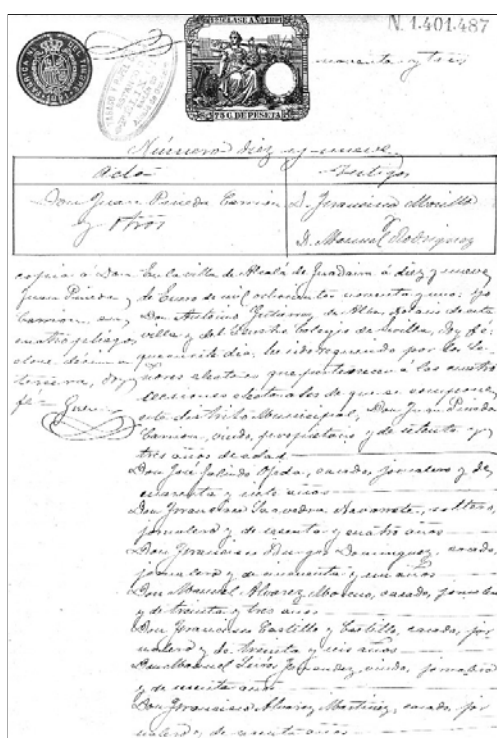 N. 1.401.487
CLASE AÑO 1891
75 C. DE PESETA
cuarenta y tres
Número diez y nueve
Acta
Testigos
Don Juan Pineda Carrion
y otros
D. Francisco Morillo
y
D. Manuel Rodriguez
copia á Don
Juan Pineda y
Carrion, en
cuatro pliegos
clase décima
tercera, doy
fé
En la villa de Alcalá de Guadaira á diez y nueve
de Enero de mil ochocientos noventa y uno: yo
Don Antonio de Alba, Notario de esta
villa y del Ilustre Colegio de Sevilla, doy fé:
que en este dia, he sido requerido por los Se-
nores electores que pertenecen á las cuatro
secciones electorales de que se compone
este distrito Municipal, Don Juan Pineda
Carrion, viudo, propietario y de setenta y
tres años de edad
Don José Galindo Ojeda, casado, jornalero y de
cuarenta y siete años
Don Francisco Saavedra Navarrete, soltero,
jornalero y de sesenta y cuatro años
Don Francisco Burgos Dominguez, casado,
jornalero y de cincuenta y un años
Don Manuel Alvarez Moreno, casado, jornalero
y de treinta y tres años
Don Francisco Castillo y Castillo, casado, jor-
nalero y de treinta y seis años
Don Manuel Fernandez, viudo, jornalero
y de años
Don Francisco Alvarez Martinez, casado, jor-
nalero y de años